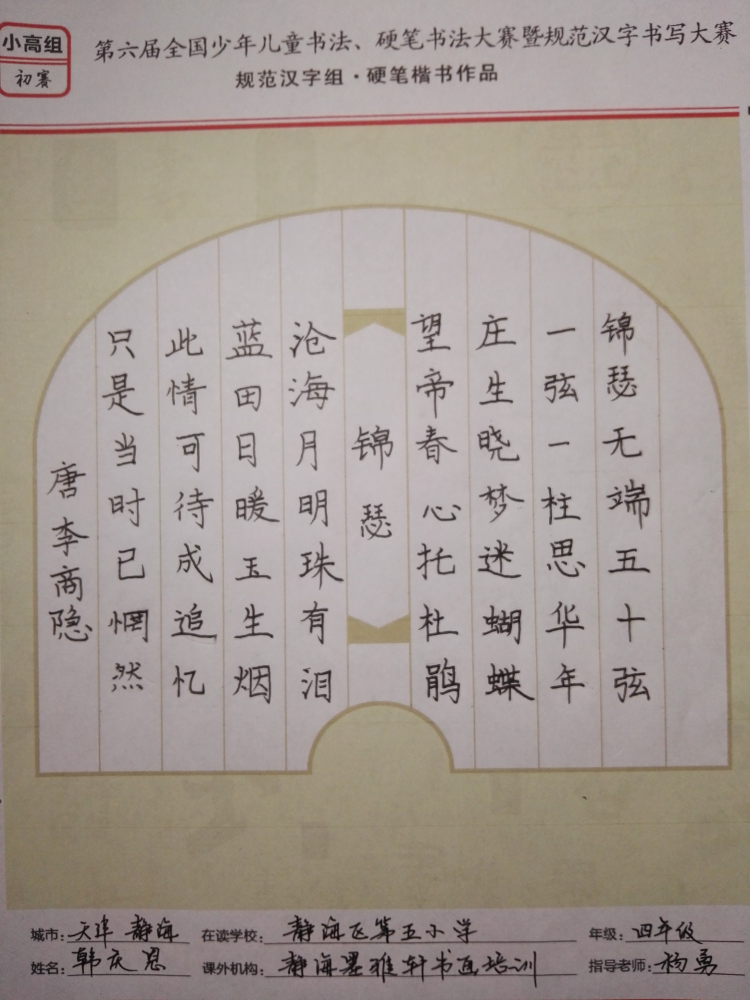 小高组
初赛
第六届全国少年儿童书法、硬笔书法大赛暨规范汉字书写大赛
规范汉字组·硬笔楷书作品
锦瑟无端五十弦
一弦一柱思华年
庄生晓梦迷蝴蝶
望帝春心托杜鹃
锦瑟
沧海月明珠有泪
蓝田日暖玉生烟
此情可待成追忆
只是当时已惘然
唐李商隐
城市:天津 静海 在读学校:静海区第五小学 年级:四年级
姓名:韩庆恩 课外机构:静海墨雅轩书画培训 指导老师:杨勇